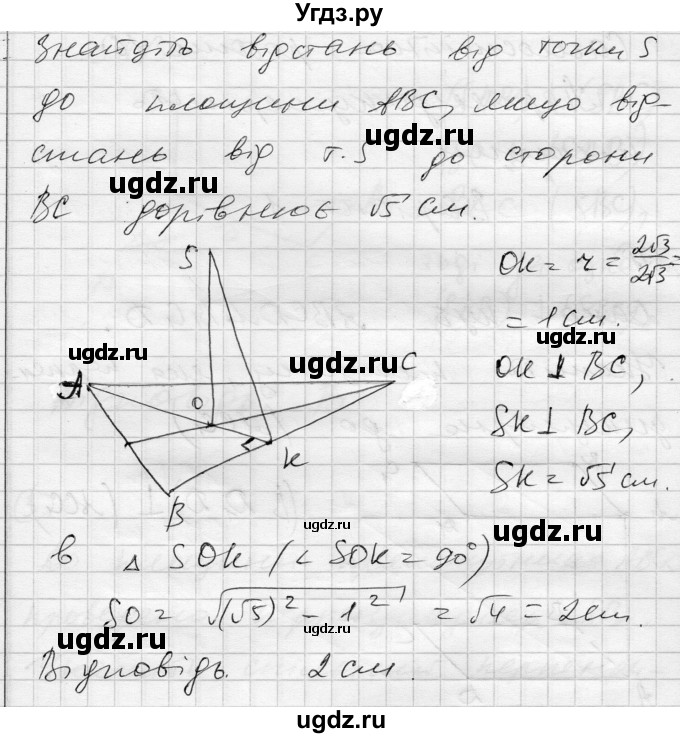 Угдз.ру
Знайдіть відстань від точки S
до площини ABC, якщо від-
стань від т. S до сторони
BC дорівнює √5 см.
ugdz.ru
ugdz.ru
S
OK = r = 2√3/2√3 =
= 1 см.
OK ⊥ BC,
SK ⊥ BC,
SK = √5 см.
ugdz.ru
ugdz.ru
ugdz.ru
A
O
C
K
B
ugdz.ru
В △ SOK (∠ SOK = 90°)
SO = √((√5)² - 1²) = √4 = 2 см.
ugdz.ru
ugdz.ru
ugdz.ru
Відповідь. 2 см.
ugdz.ru